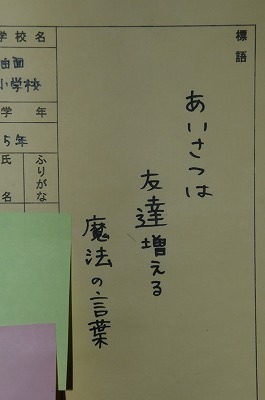 標語
あいさつは
友達増える
魔法の言葉
学校名
油面
小学校
学年
5年
ふりがな
氏名